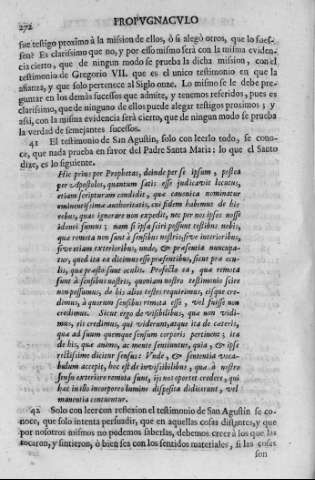 272 PROPVGNACVLO
fue testigo proximo à la mission de ellos, ò si alegò otros, que lo fues-
sen? Es clarissimo que no, y por esso mismo serà con la misma eviden-
cia cierto, que de ningun modo se prueba la dicha mission, con el
testimonio de Gregorio VII. que es el unico testimonio en que la
afianza, y que solo pertenece al Siglo onze. Lo mismo se le debe pre-
guntar en los demàs sucessos que admite, y tenemos referidos, pues es
clarissimo, que de ninguno de ellos puede alegar testigos proximos; y
assi, con la misma evidencia serà cierto, que de ningun modo se prueba
la verdad de semejantes sucessos.
41 El testimonio de San Agustin, solo con leerlo todo, se cono-
ce, que nada prueba en favor del Padre Santa Maria: lo que el Santo
dize, es lo siguiente.
Hic prius per Prophetas, deinde per se ipsum, postea
per Apostolos, quantum satis esse judicavit locutus,
etiam scripturam condidit, quæ canonica nominatur
eminentissimæ authoritatis, cui fidem habemus de his
rebus, quas ignorare non expedit, nec per nos ipsos nosse
idonei sumus; nam si ipsa sciri possunt testibus nobis,
quæ remota non sunt à sensibus nostris, sive interioribus,
sive etiam exterioribus, unde, & præsentia nuncupa-
tur, quod ita ea dicimus esse præsentibus, sicut præ ocu-
lis, quæ præsto sunt oculis. Profecto ea, quæ remota
sunt à sensibus nostris, quoniam nostro testimonio scire
non possumus, de his alios testes requirimus, eisque cre-
dimus, à quorum sensibus remota esse, vel fuisse non
credimus. Sicut ergo de visibilibus, quæ non vidi-
mus, eis credimus, qui viderunt, atque ita de cæteris,
quæ ad suum quemque sensum corporis pertinent; ita
de his, quæ animo, ac mente sentiuntur, quia, & ipse
rectissime dicitur sensus: Unde, & sententia voca-
bulum accepit, hoc est de invisibilibus, quæ à nostro
sensu exteriore remota sunt, iis nos oportet credere, qui
hæc in illo incorporeo lumine disposita didicerunt, vel
manentia contuentur.
42 Solo con leer con reflexion el testimonio de San Agustin se co-
noce, que solo intenta persuadir, que en aquellas cosas distantes, y que
por nosotros mismos no podemos saberlas, debemos creer à los que las
tocaron, y sintieron, ò bien sea con los sentidos materiales, si las cosas
son